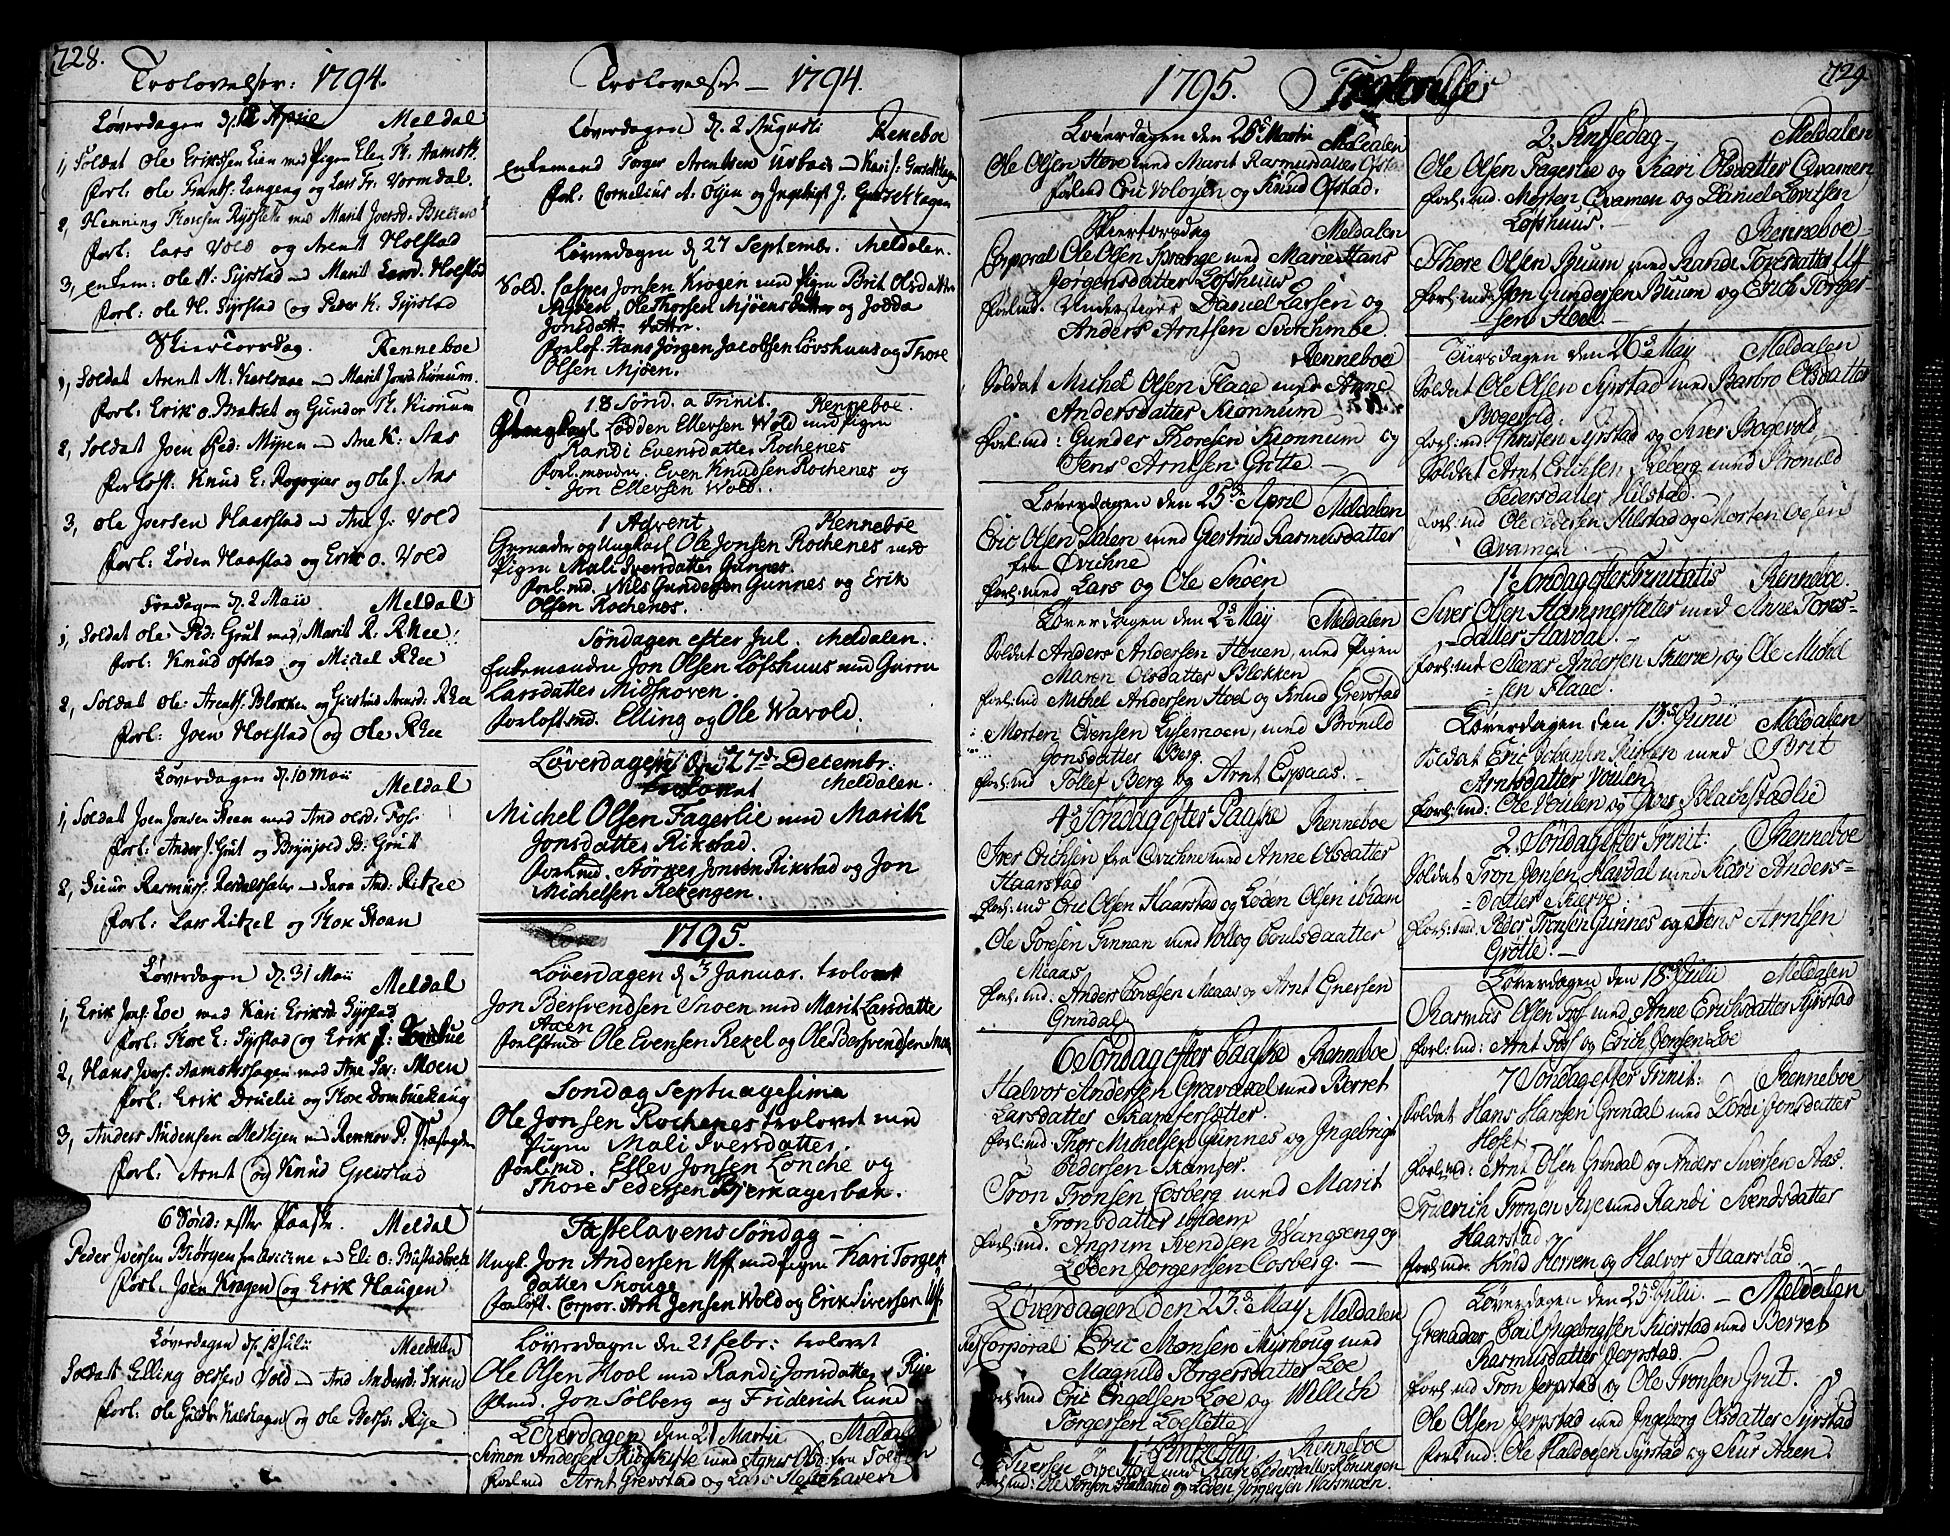 728.
Trolovelser: 1794.
Løverdagen d. 12 Aprie Meldal
1, Soldat Ole Erikssen Lien med Pigen Elen Th. Aamott.
forl: Ole Frantss. Langeng og Lars Fr: Vormdal.
2, Henning Thoresen Rysslek med Marit Joersd:
forl: Lars Vold og Arent Holstad
3, Enkem: Ole H. Syrstad med Marit Larsd. Holstad
forl: Ole H. Syrstad og Peder K. Syrstad
Skiertorsdag. Renneboe
1, Soldat Arent M. Karlsaae med Marit Jonsd. Kiønum.
forl: Erik O. Bratset og Gunder Th. Kiønum
2, Soldat Joen Ped: Myren med Ane K: Aas
forløft: Knud E: Rogogier og Ole J. Aas
3, Ole Joersen Haarstad med Ane J: Vold
forl: Løden Haarstad og Erik O. Vold
Søndagen d. 2 Maii Meldal
1, Soldat Ole Ped: Grut med Marit R: Rhee:
forl: Knud Ofstad og Michel Rhee
2, Soldat Ole Arentss. Blokken og Giertrud Arensd. Rhee
forl: Joen Hoelstad og Ole Rhee
Løverdagen d. 10 Maii Meldal
1, Soldat Joen Jonsen Aaen med And Olsd. Fos:
forl: Ander J. Grut og Brynjold B: Grut
2, Siuur Rasmuss. med Sara And: Ritzel
forl: Lars Ritzel og Thore Stoan
Løverdagen d. 31 Maii Meldal
1, Erik Jonss. Loe med Kari Eriksd. Syrstad
forl: Thore E: Syrstad og Erik
2, Hans Joerss. Aamotshagen med Ane Sor: Moen
forl: Erik Druelie og Thore Dombuehaug
3, Anders Andersen Mestejen med Rennov P:
forl: Arnt og Knud Grevstad
6 Sønd: efter Paaske. Meldal
Peder Iversen Biørgen med Eli O:
forl: Joen Kragen og Erik Haugen
Løverdagen d. 12 Julii Meldalen
Soldat Elling Olssen Vold med And Andersd: Snøen
forl: Ole og Ole Berss: Rise
Trolovelser — 1794.
Løverdagen d. 2 Augusti Renneboe
Enkemand Torger Arentsen Urbais med Kari J: Gunsethagen
forl: Cornelius A. Olsen og Ingebrigt J. Gunsethagen
Løverdagen d. 27 Septembr. Meldalen.
Sold. Casper Jonsen Krogen med Pigen Brit Olsdatter
Mjøen, Ole Thorsen Mjøens og Jodda
Jonsdatt.
forlof. Hans Jörgen Jacobsen Løvshuus og Thore
Olsen Mjøen.
18 Sönd. a Trinit. Renneboe.
Ungkarl Lodden Ellersen Wold med Pigen
Randi Evensdatter Rochenes
forl.mænd. Even Knudsen Rochenes og
Jon Ellersen Wold.
1 Advent Renneboe
Grenader og Ungkarl Ole Jonsen Rochenes med
Pigen Mali Iversdatter Gunnes.
forl.md. Nils Gundersen Gunnes og Erik
Olsen Rochenes.
Søndagen efter Jul. Meldalen.
Enkemanden Jon Olsen Löfshuus med Gurru
Larsdatter Midskoven.
forloft.md. Elling og Ole Wavold.
Løverdagen d. 27de Decembr:
Meldalen.
Michel Olsen Fagerlie med Marith
Jonsdatter Rikstad.
forl.md. Jonsen Rikstad og Jon
Michelsen Rekengen.
1795.
Løverdagen d. 3 Januar. trolovet
Jon Bersvendsen Snoen med Marit Larsdatter
Aaen
forlofmd Ole Evensen Rezel og Ole Bersvendsen Snoen
Søndag Septuagesima
Ole Jonsen Rochenes trolovet med
Pigen Mali Iversdatter.
forl.md. Ellev Jonsen Lonche og
Thore Pedersen Bjerkagerbak.
Fastelavens Söndag —
Ungk. Jon Andersen Uff med Pigen Kari Torgers
datter Snouge
forloft. Corpor. Arn Jensen Wold og Erik Sivertsen Uff.
Løverdagen den 21 febr: trolovet
Ole Olsen Hool med Randi Jonsdatter Rise
forl.md. Jon Solberg og Friderich Lund
Løverdagen den 21 Martii Meldalen
Simon Andersen med Agnis Olsd: fra
forl.md Arnt Grevstad og Lars
1795. Trolovelser
729.
Løverdagen den 28de Martii Meldalen
Ole Olsen Hove med Marit Rasmusdatter Ofstad
forl:md Eric Voloyen og Knud Ofstad.
Skiertorsdag Meldalen
Corporal Ole Olsen Sprænge med Marie Hans
Jørgensdatter Lofshuus
forl:md. Understiger Daniel Larsen og
Anders Arntsen Svorchmbe.
Renneboe
Soldat Michel Olsen Flaae med Anne
Andersdatter Kionnum
forl:md: Gunder Thoresen Kionnum og
Jens Arntsen Grötte —
Løverdagen den 25de April Meldalen
Eric Olsen Dalen med Giertrud Rasmusdatter
fra Qvichne
forl:md Lars og Ole Snöen
Løverdagen den 2de May Meldalen
Soldat Anders Andersen Hoven, med Pigen
Maren Olsdatter Blokken
forl:md Michel Andersen Hoel og Knud Grevstad
Morten Evensen Lysemoen, med Brønild
Jonsdatter Berg.
forl:md Tollef Berg og Arnt Espaas.
4de Söndag efter Paaske Renneboe
Iver Erichsen fra Qvichne med Anne Olsdatter
Haarstad
forl:md Eric Olsen Haarstad og Loden Olsen ibidem
Ole Toresen Finnan med Vollog Poulsdaatter
Meaas.
forl:md: Anders Meaas og Arnt Enersen
Grindal
6 Söndag efter Paaske Renneboe
Halvor Andersen Gravaxel med Berret
Larsdatter Skamfersetter.
forl:md: Thor Michelsen Gunnes og Ingebrigt
Pedersen Skamfer.
Tron Tronsen Cosberg med Marit
Tronsdatter ibidem
forl:md: Angrim Svendsen Wangseng og
Loden Jørgensen Cosberg. —
Løverdagen den 23de May Meldalen
Corporal Eric Monsen Myrhoug med
Magnild Torgersdatter Loe
forl:md Eric Engelsen Loe og Willich
Torgersen Loeslette
1te Pintzedag Renneboe
Sivertse Ojestad med Kari Pedersdatter Röningen
forl:md: Ole Jonson Haarland og Loden Jørgensen Wasmoen.
2. Pintsedag Meldalen
Ole Olsen Fagerlie og Kari Olsdatter Qvamen
forl:md. Morten Qvamen og Daniel Lovitsen
Lofshuus. — Renneboe
Thore Olsen Buum med Randi Tovesdatter Uf
forl:md: Jon Gundersen Buum og Erich Torger
sen Hoel.
Tiirsdagen den 26de May Meldalen
Soldat Ole Olsen Syrstad med Barbro Olsdatter
Bogevold.
forl:md Christen Syrstad og Siver Bogevold
Soldat Arnt Erichsen Skeberg med Brønild
Pedersdatter Hilstad.
forl:md Ole Pedersen Hilstad og Morten Olsen
Qvamen.
1te Søndag efter Trinitatis Renneboe.
Siver Olsen Hammersæter med Anne Tores-
datter Havdal
forl:md: Steener Andersen Skierve, og Ole Michel
sen Flaae.
Løverdagen den 13de Junii Meldalen
Soldat Eric Johansen Risen med Brit
Arntsdatter Voulen
forl:md: Ole Voulen og Iver Blachstadlie
2. Söndag efter Trinit: Renneboe
Soldat Tron Jensen Havdal med Kari Anders-
datter Skierve
forl:md. Peder Tronsen Gunnes og Jens Arntsen
Grötte. —
Løverdagen den 18de Julii Meldalen
Rasmus Olsen Fos med Anne Erichsdatter Syrstad
forl:md: Arnt Fos og Erich Jonsen Loe
7 Söndag efter Trinit: Renneboe
Soldat Hans Hansen Grindal med Londi Jonsdatter
Hoset
forl:md: Arnt Olsen Grindal og Anders Siversen Aas.
Friderich Tronsen Rise med Randi Svendsdatter
Haarstad
forl:md: Knud Herrem og Halvor Haarstad
Løverdagen den 25de Julii. — Meldalen
Grenader Poul Ingebrigtsen Suirstad med Berret
Rasmusdatter Jerpstad.
forl:md Tron Jerpstad og Ole Tronsen Grut.
Ole Olsen Jerpstad med Ingeborg Olsdatter Syrstad
forl:md: Ole Haldogen Syrstad og Siur Aaen.